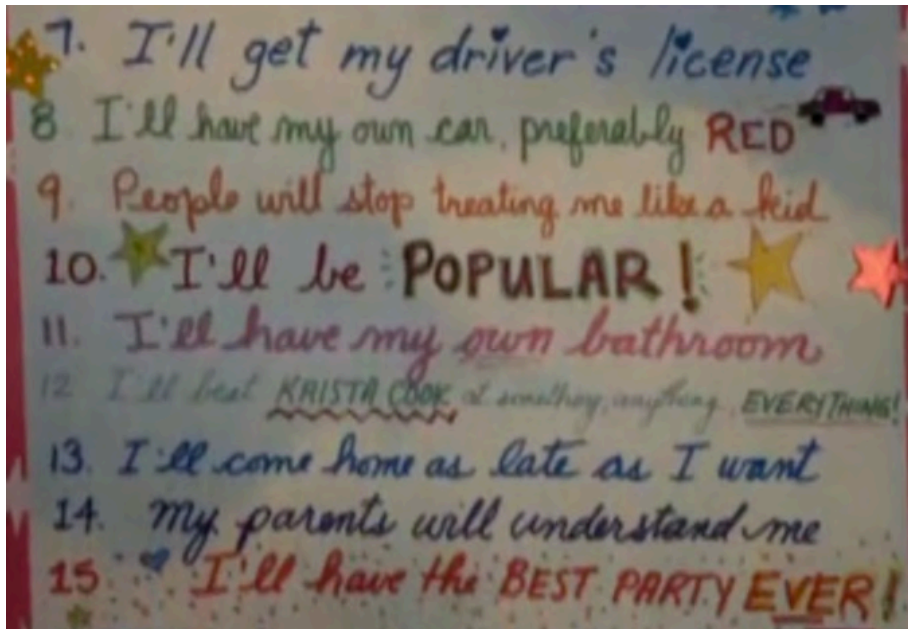 7. I'll get my driver's license
8 I'll have my own car, preferably RED
9. People will stop treating me like a kid
10. I'll be POPULAR!
11. I'll have my own bathroom
12 I'll beat KRISTA COOK at something, anything, EVERYTHING!
13. I'll come home as late as I want
14. My parents will understand me
15 I'll have the BEST PARTY EVER!